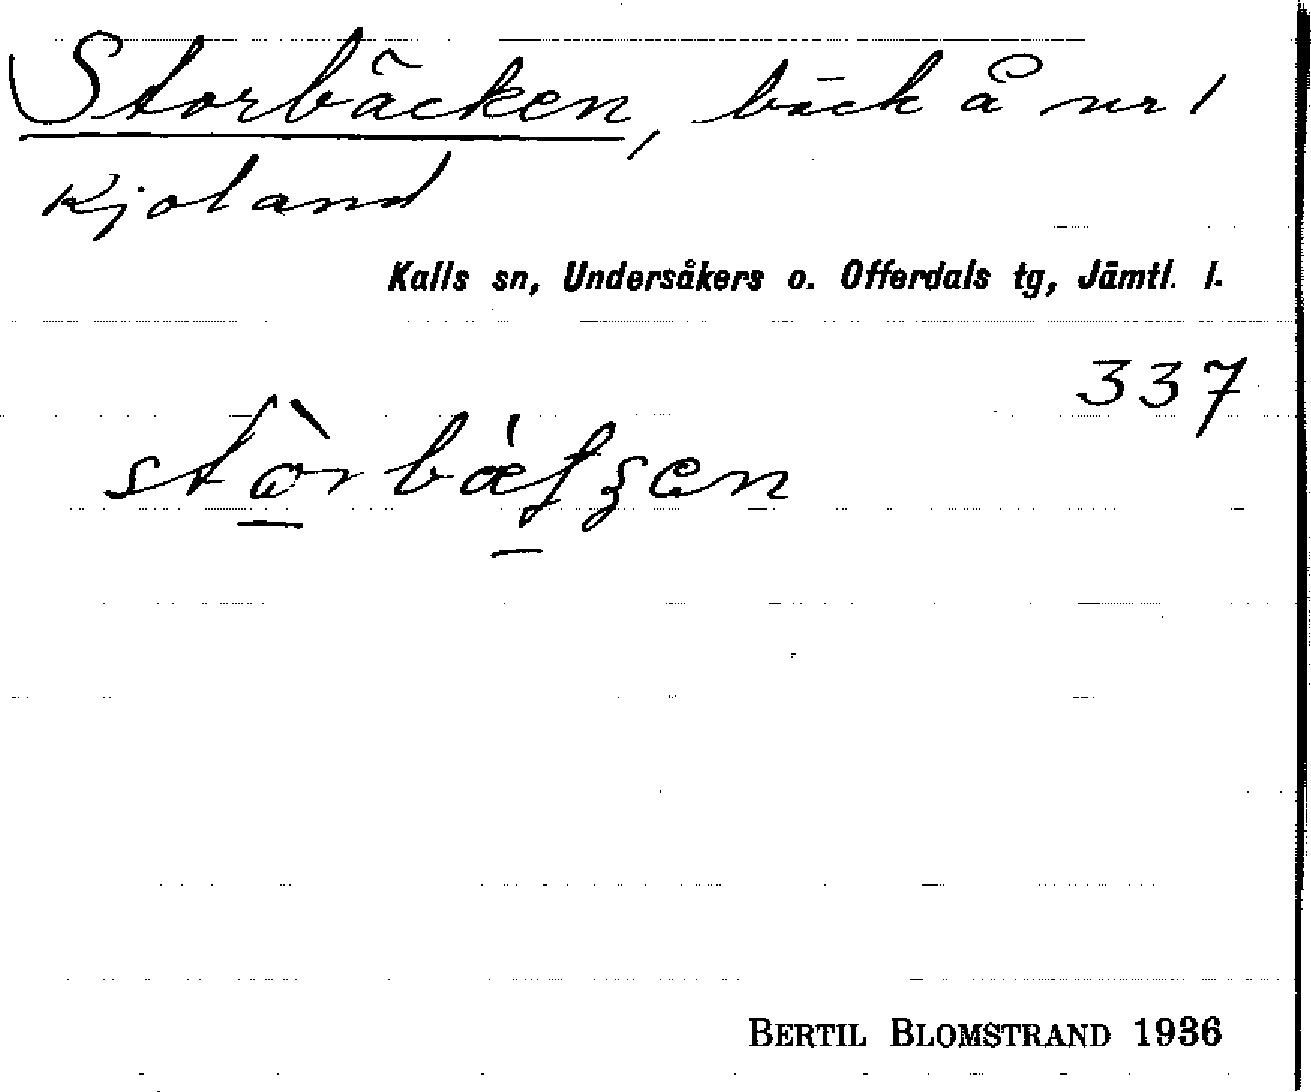 Storbäcken, bäck å nr 1
Kjoland
Kalls sn, Undersåkers o. Offerdals tg, Jämtl. l.
337
BERTIL BLOMSTRAND 1936